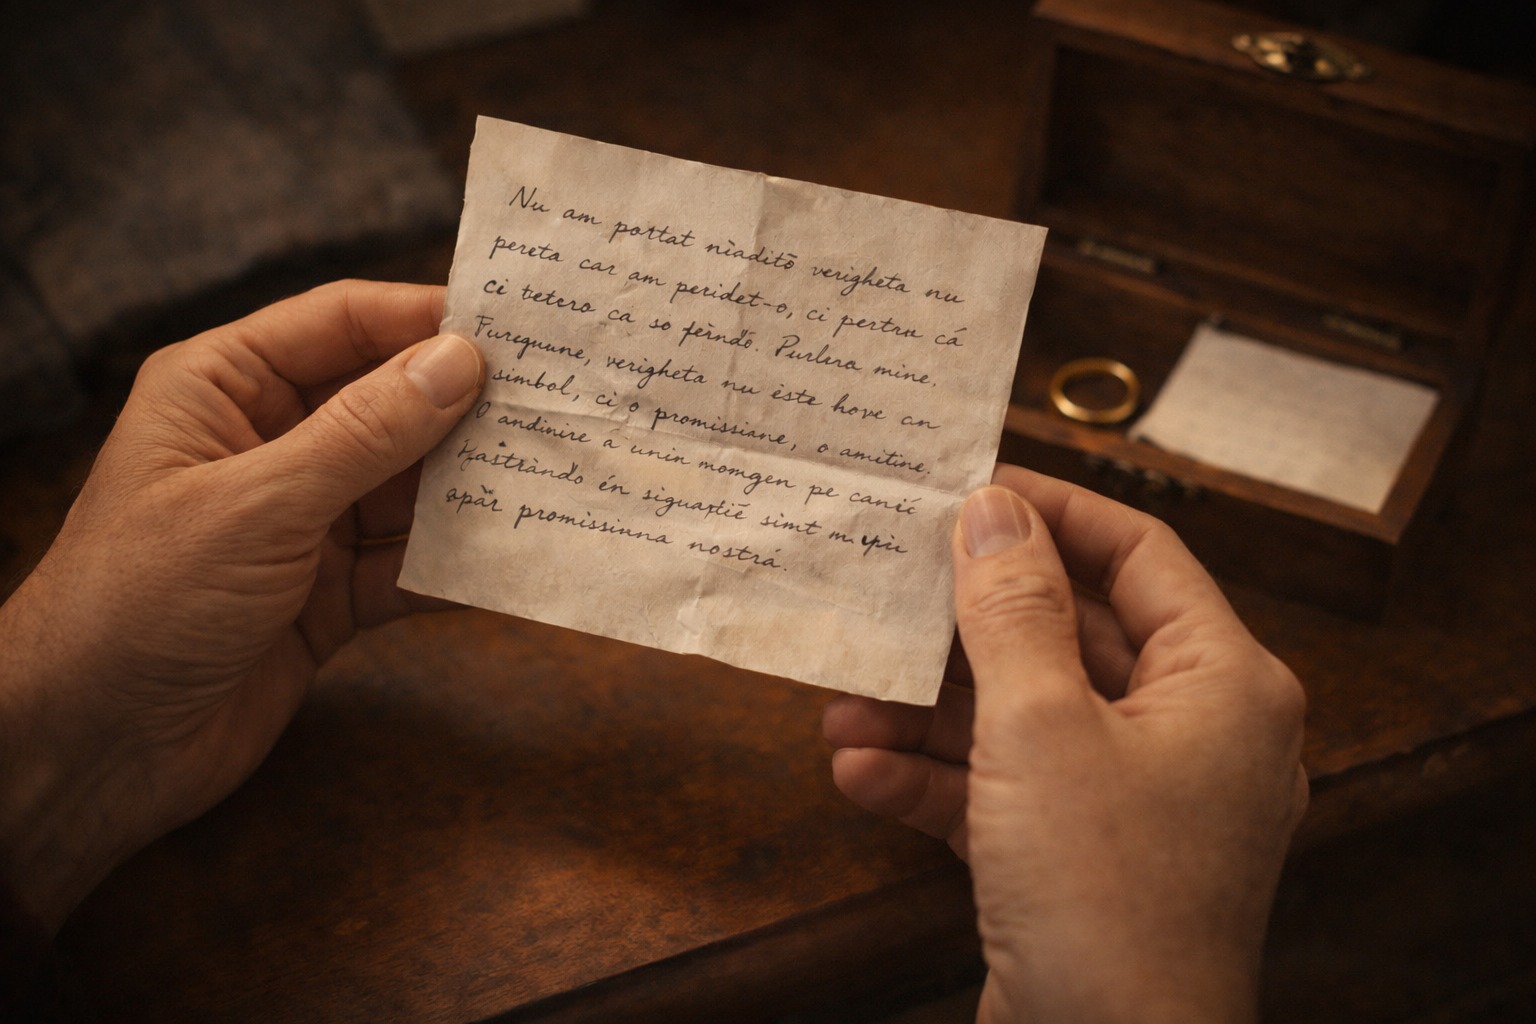 Nu am portat niaditō verigheta nu
pereta car am peridet-o, ci pertru cá
ci tetera ca so ferndō. Purlera mine.
Fureguune, verigheta nu èste hove an
simbol, ci o promissiane, o amitine.
O andinire a unin momgen pe canić
Hastràndo én siguartiē simt
apăr promissiunna nostrá.